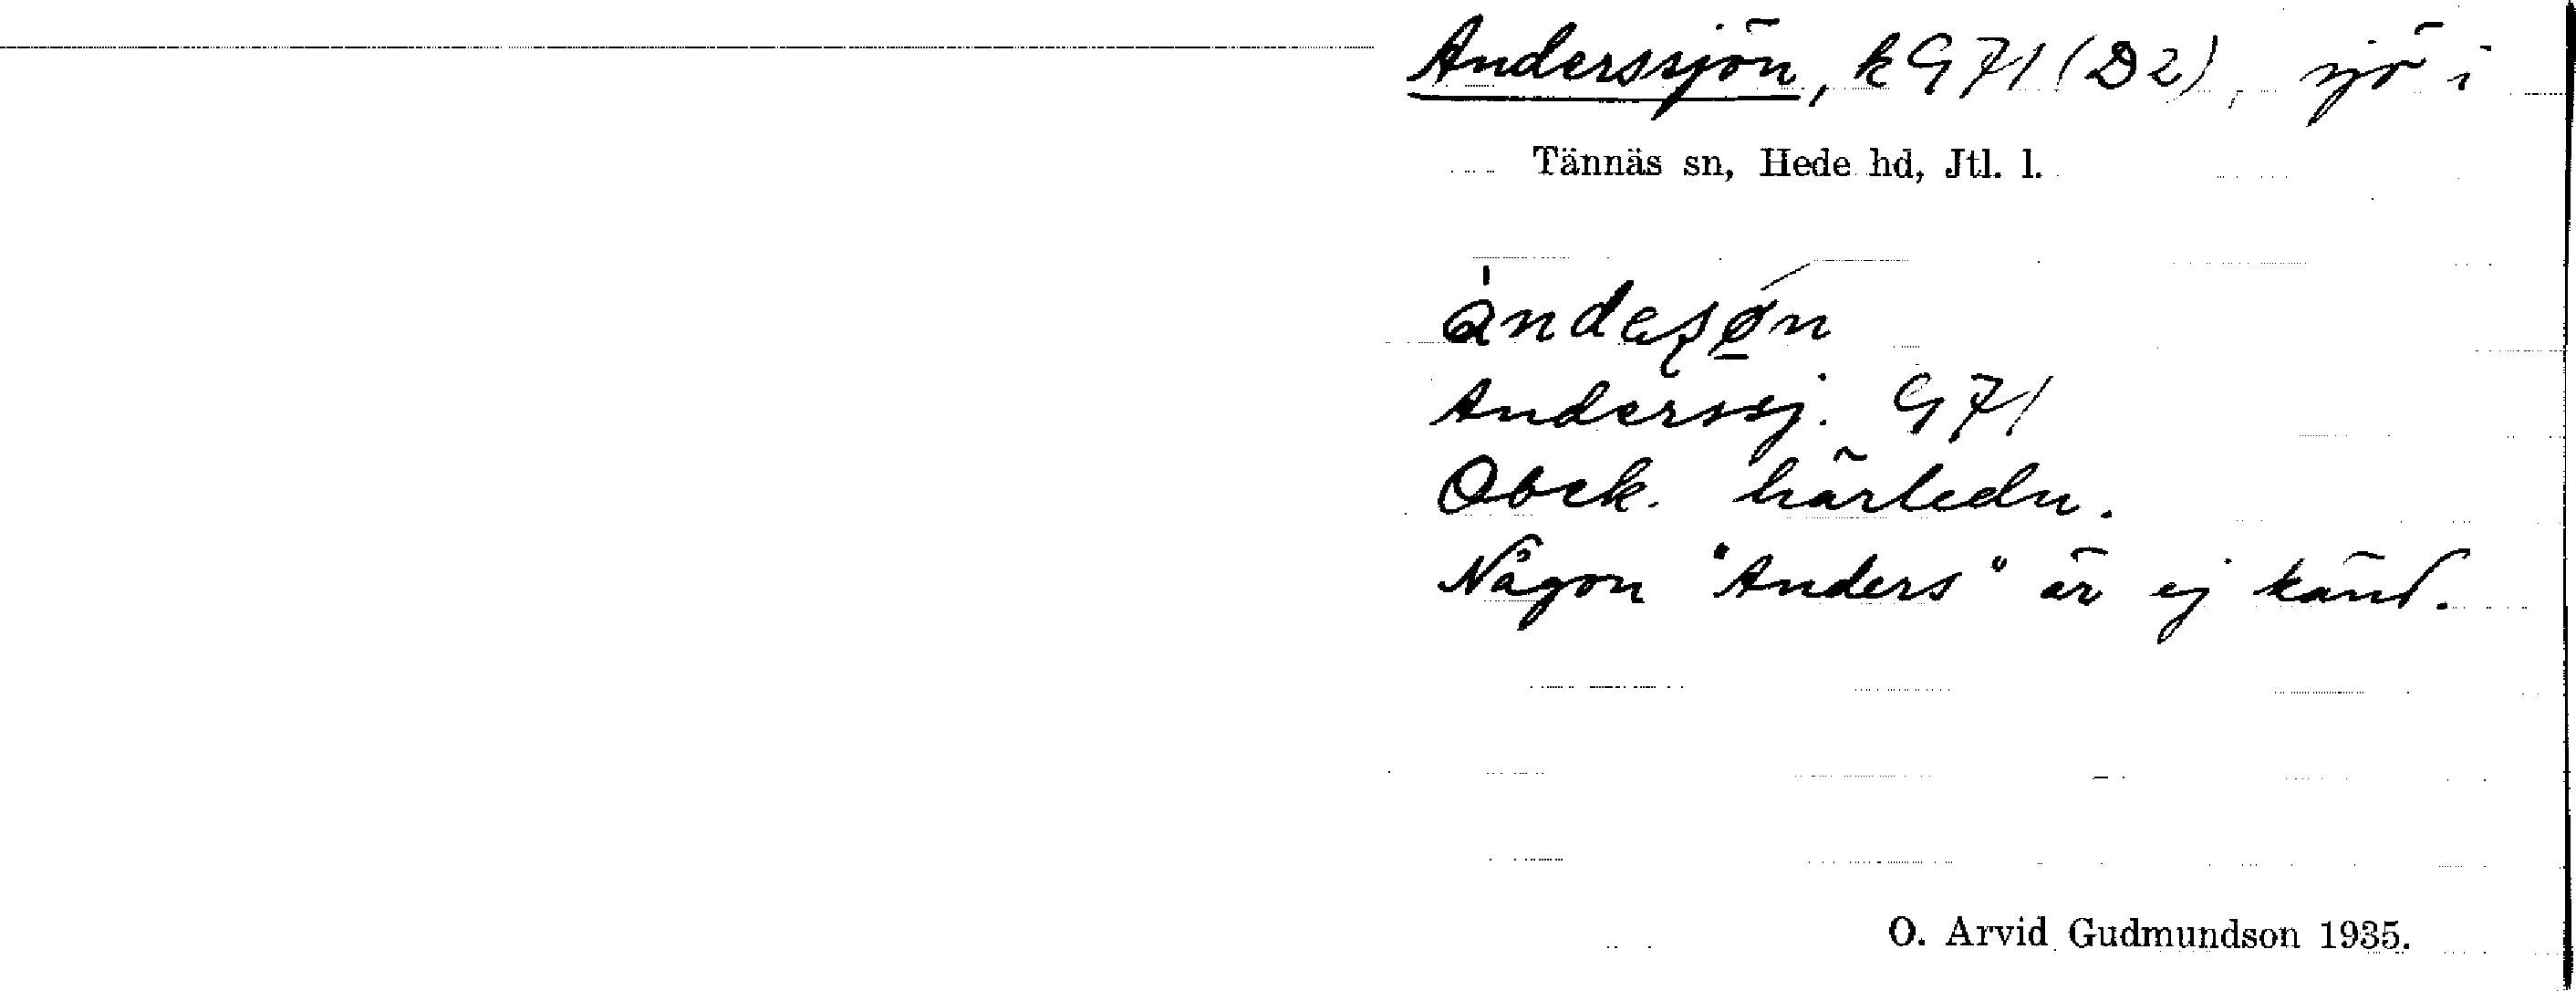 Anderssjön, k G71 (D2), sjö i
Tännäs sn, Hede hd, Jtl. l.
Anderssj. G71
Obek. härledn.
Någon "Anders" är ej känd.
O. Arvid Gudmundson 1935.